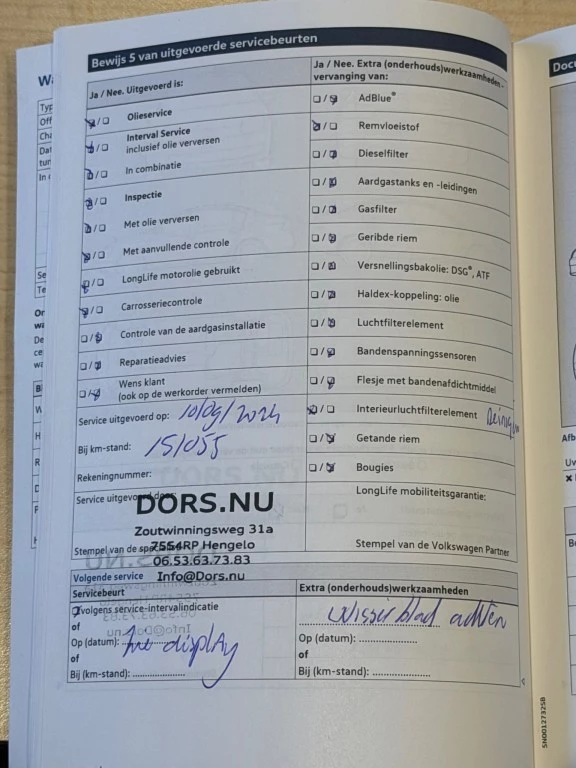 Bewijs 5 van uitgevoerde servicebeurten
Ja / Nee. Uitgevoerd is:
Olieservice
Interval Service
inclusief olie verversen
In combinatie
Inspectie
Met olie verversen
Met aanvullende controle
LongLife motorolie gebruikt
Carrosseriecontrole
Controle van de aardgasinstallatie
Reparatieadvies
Wens klant
(ook op de werkorder vermelden)
Service uitgevoerd op: 10/09/2024
Bij km-stand: 151055
Rekeningnummer:
Service uitgevoerd door:
DORS.NU
Zoutwinningsweg 31a
7554RP Hengelo
06.53.63.73.83
Info@Dors.nu
Stempel van de
Ja / Nee. Extra (onderhouds)werkzaamheden -
vervanging van:
AdBlue®
Remvloeistof
Dieselfilter
Aardgastanks en -leidingen
Gasfilter
Geribde riem
Versnellingsbakolie: DSG®, ATF
Haldex-koppeling: olie
Luchtfilterelement
Bandenspanningssensoren
Flesje met bandenafdichtmiddel
Interieurluchtfilterelement
Getande riem
Bougies
LongLife mobiliteitsgarantie:
Stempel van de Volkswagen Partner
Volgende service
Servicebeurt
Volgens service-intervalindicatie
of
Op (datum):
display
of
Bij (km-stand):
Extra (onderhouds)werkzaamheden
Op (datum):
of
Bij (km-stand):
5N0012732SB
Docu
Afb
Uv